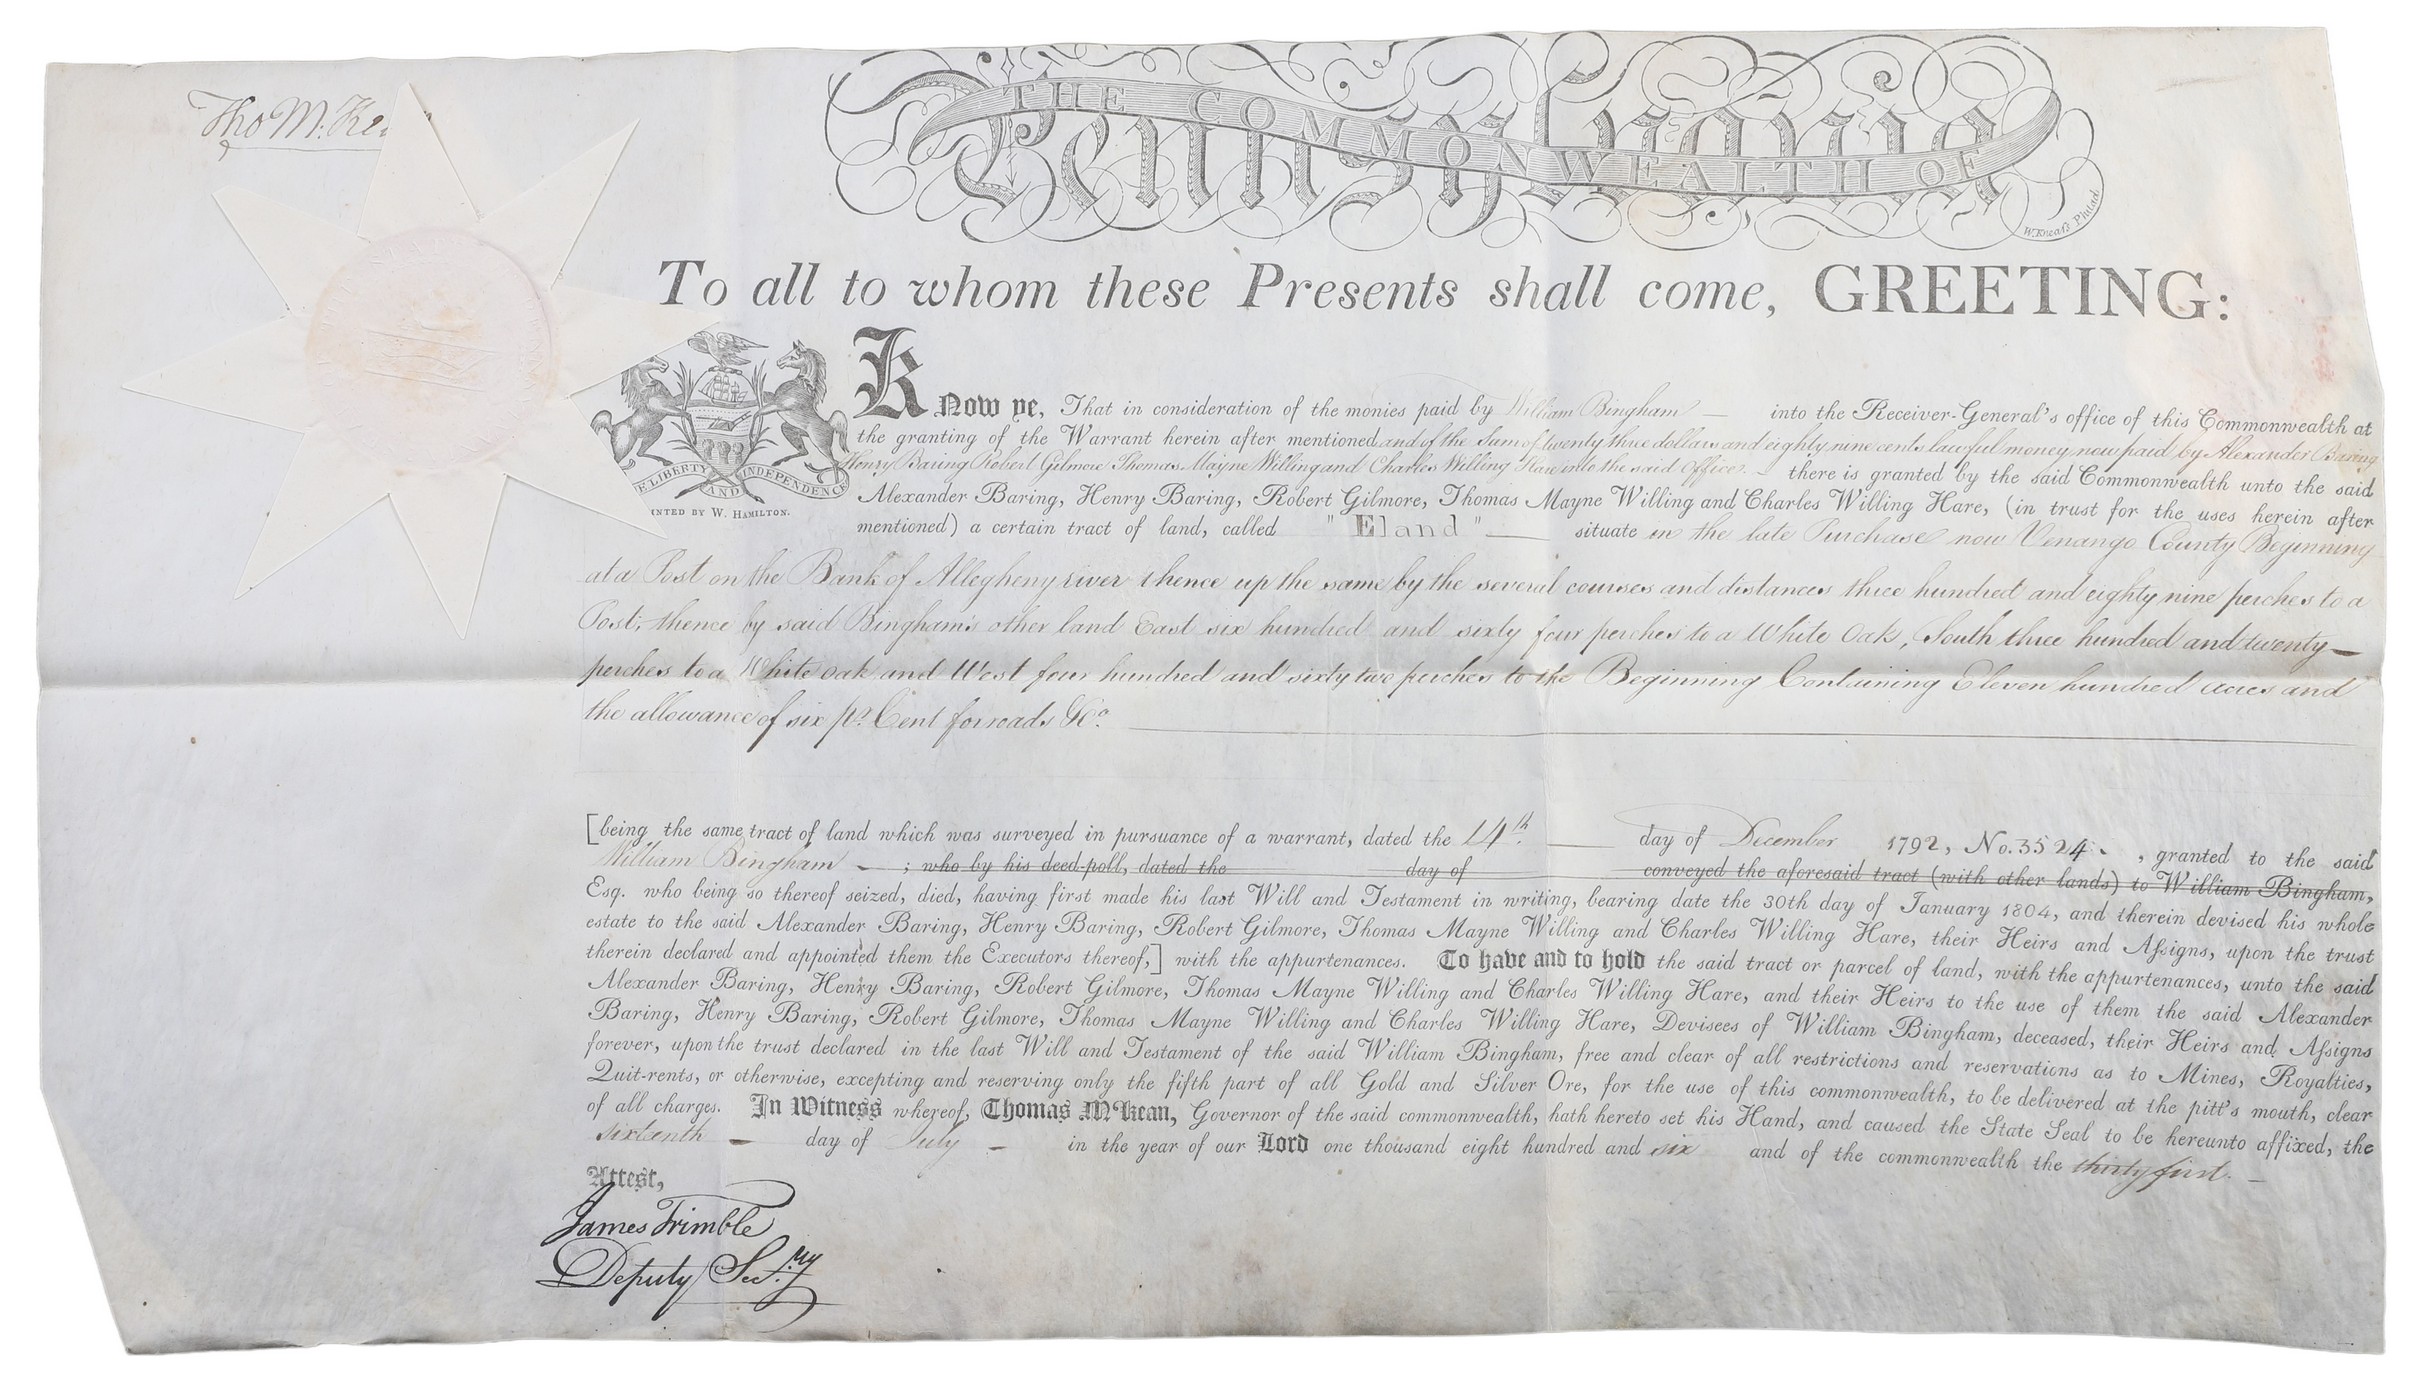 Tho M:Ke
THE COMMONWEALTH OF
Pennsylvania
W.Kneass Philad.
To all to whom these Presents shall come, GREETING:
Know ye, That in consideration of the monies paid by William Bingham — into the Receiver-General's office of this Commonwealth at
the granting of the Warrant herein after mentioned and of the Sum of twenty three dollars and eighty nine cents lawful money now paid by Alexander Baring
Henry Baring Robert Gilmore Thomas Mayne Willing and Charles Willing Hare into the said Office. — there is granted by the said Commonwealth unto the said
Alexander Baring, Henry Baring, Robert Gilmore, Thomas Mayne Willing and Charles Willing Hare, (in trust for the uses herein after
mentioned) a certain tract of land, called "Eland" — situate in the late Purchase now Venango County Beginning
E LIBERTY AND INDEPENDENCE
INTED BY W. HAMILTON.
at a Post on the Bank of Allegheny river thence up the same by the several courses and distances three hundred and eighty nine perches to a
Post; thence by said Bingham's other land East six hundred and sixty four perches to a White Oak, South three hundred and twenty —
perches to a White oak and West four hundred and sixty two perches to the Beginning Containing Eleven hundred acres and
the allowance of six pr. Cent for roads &c.
[being the same tract of land which was surveyed in pursuance of a warrant, dated the 14th. — day of December 1792, No. 3524. , granted to the said
William Bingham — ; who by his deed-poll, dated the day of conveyed the aforesaid tract (with other lands) to William Bingham,
Esq. who being so thereof seized, died, having first made his last Will and Testament in writing, bearing date the 30th day of January 1804, and therein devised his whole
estate to the said Alexander Baring, Henry Baring, Robert Gilmore, Thomas Mayne Willing and Charles Willing Hare, their Heirs and Aſsigns, upon the trust
therein declared and appointed them the Executors thereof,] with the appurtenances. To have and to hold the said tract or parcel of land, with the appurtenances, unto the said
Alexander Baring, Henry Baring, Robert Gilmore, Thomas Mayne Willing and Charles Willing Hare, and their Heirs to the use of them the said Alexander
Baring, Henry Baring, Robert Gilmore, Thomas Mayne Willing and Charles Willing Hare, Devisees of William Bingham, deceased, their Heirs and Aſsigns
forever, upon the trust declared in the last Will and Testament of the said William Bingham, free and clear of all restrictions and reservations as to Mines, Royalties,
Quit-rents, or otherwise, excepting and reserving only the fifth part of all Gold and Silver Ore, for the use of this commonwealth, to be delivered at the pitt's mouth, clear
of all charges. In Witness whereof, Thomas M'Kean, Governor of the said commonwealth, hath hereto set his Hand, and caused the State Seal to be hereunto affixed, the
sixteenth — day of July — in the year of our Lord one thousand eight hundred and six and of the commonwealth the thirty first. —
Attest,
James Trimble
Deputy Sec.ry